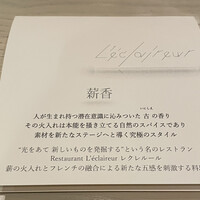 L'éclaireur
薪香
人が生まれ持つ潜在意識に沁みついた 古 の香り
その火入れは本能を掻き立てる自然のスパイスであり
素材を新たなステージへと導く究極のスタイル
“光をあて 新しいものを発掘する”という名のレストラン
Restaurant L'éclaireur レクレルール
薪の火入れとフレンチの融合による新たな五感を刺激する料